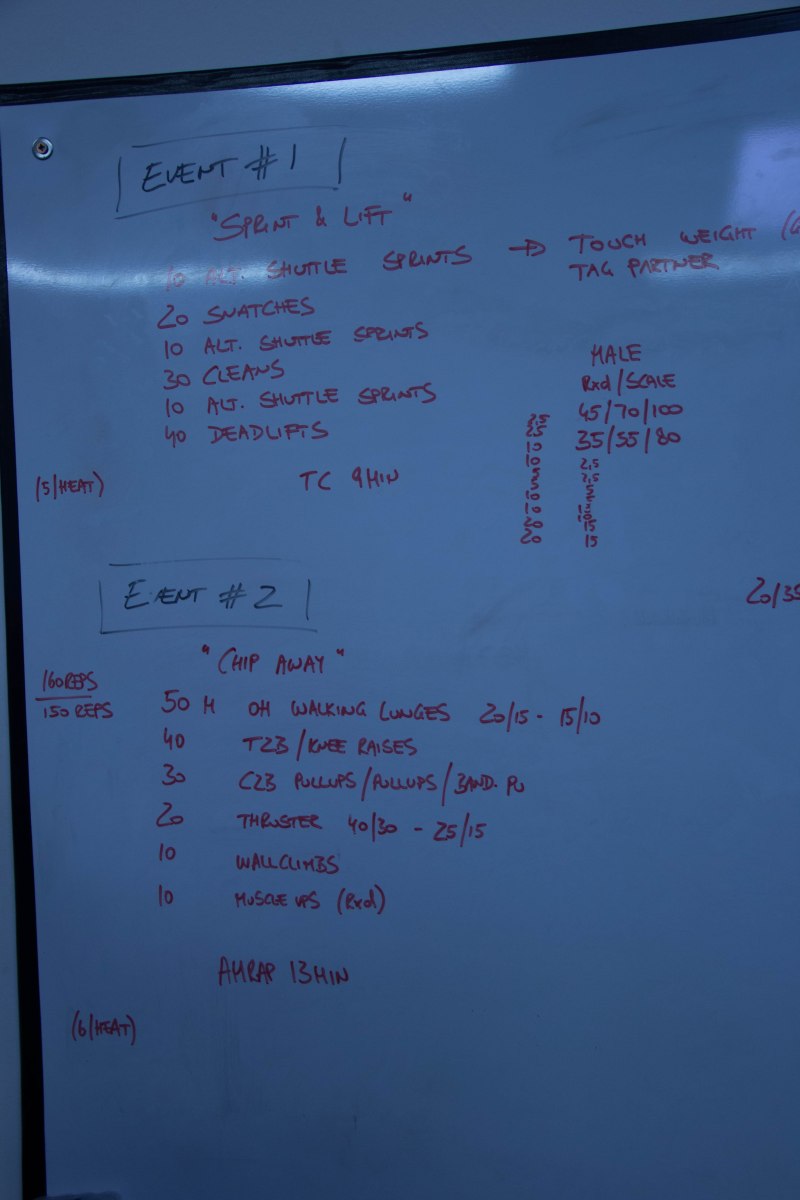 EVENT #1
"SPRINT & LIFT"
10 ALT. SHUTTLE SPRINTS → TOUCH WEIGHT
TAG PARTNER
20 SNATCHES
10 ALT. SHUTTLE SPRINTS
30 CLEANS
10 ALT. SHUTTLE SPRINTS
40 DEADLIFTS
MALE
Rxd/SCALE
45/70/100
35/55/80
2,5
25
10
10
5
5
10
10
20
20
2,5
2,5
5
15
15
(5/HEAT)
TC 9MIN
20/35
EVENT #2
"CHIP AWAY"
160 REPS
150 REPS
50 M OH WALKING LUNGES 20/15 - 15/10
40 T2B/KNEE RAISES
30 C2B PULLUPS/PULLUPS/BAND. PU
20 THRUSTER 40/30 - 25/15
10 WALLCLIMBS
10 MUSCLE UPS (Rxd)
AMRAP 13MIN
(6/HEAT)